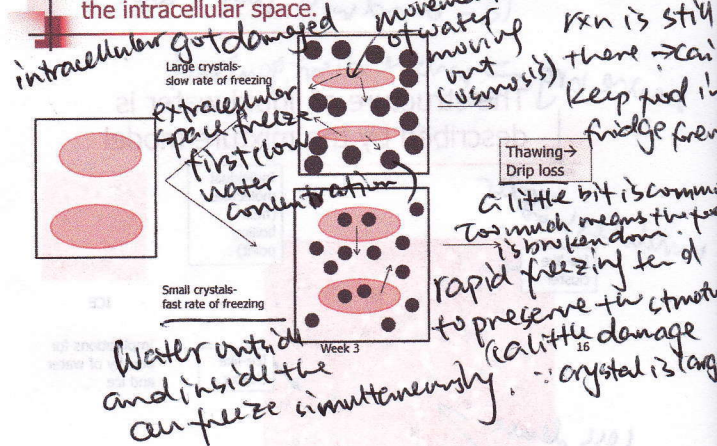 the intracellular space.
intracellular got damaged
movement
of water
moving
out
(osmosis)
rxn is still
there → can
keep food in
fridge forev
Large crystals-
slow rate of freezing
extracellular
space freeze
first (low
water
concentration)
Thawing→
Drip loss
a little bit is common
Too much means the
is broken down.
rapid freezing tend
to preserve the
(a little damage
∵ crystal is larg
Small crystals-
fast rate of freezing
Water outside
and inside the
can freeze simultaneously.
Week 3
16